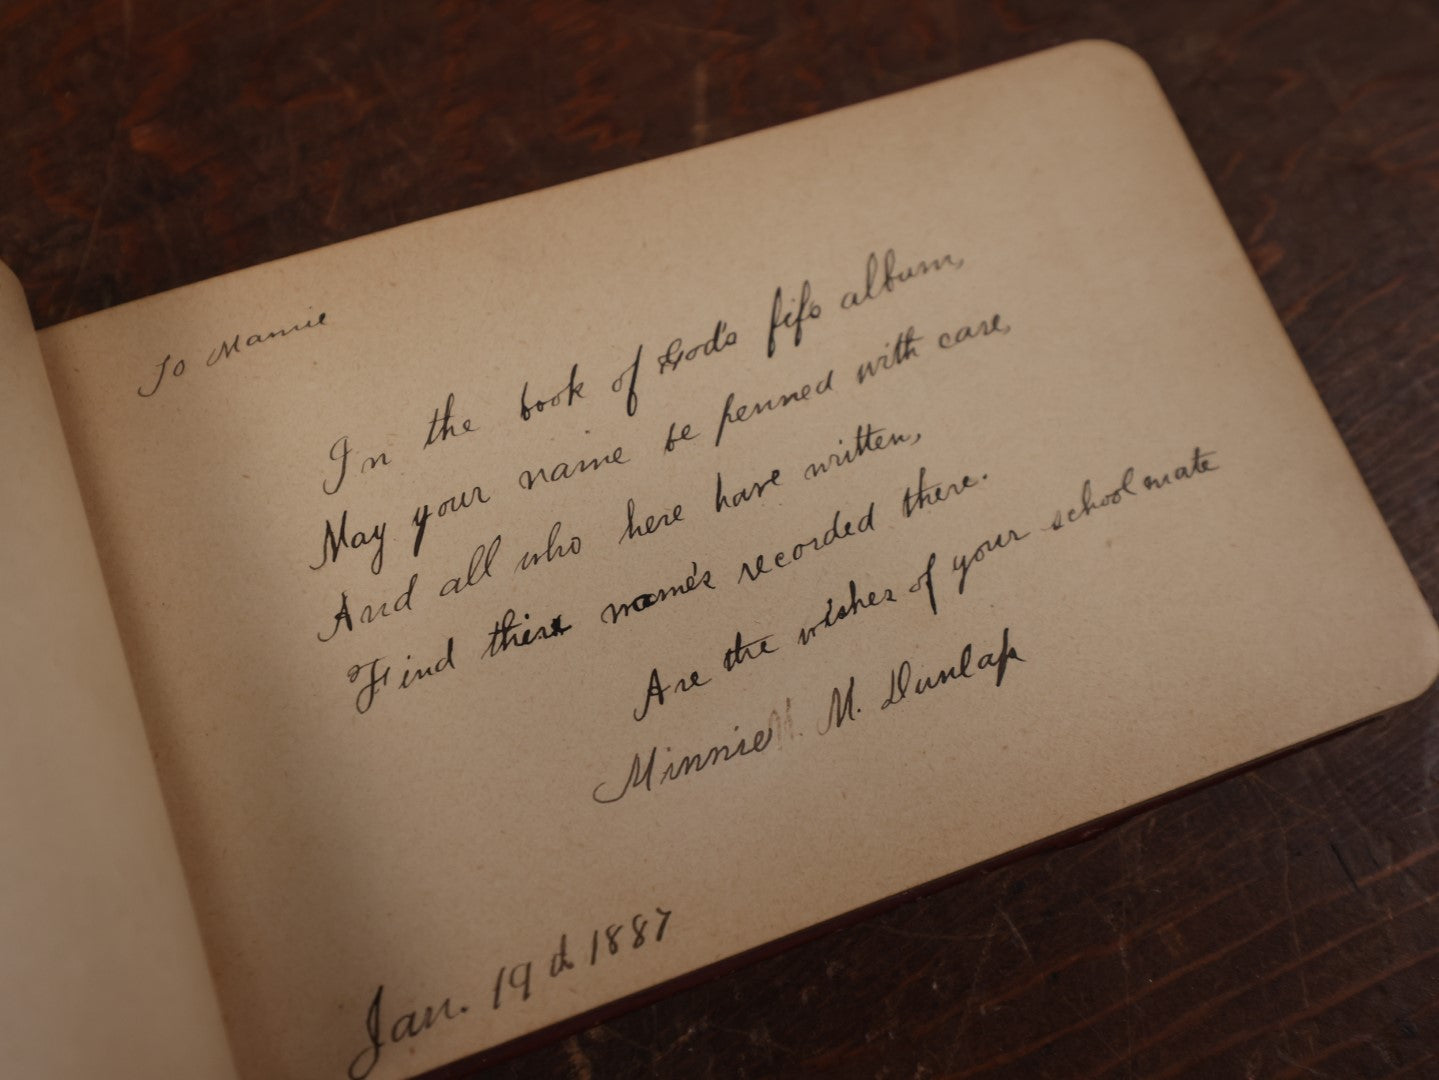 To Mamie
In the book of God's fifs album,
May your name be penned with care,
And all who here have written,
Find thiex name's recorded there.
Are the wishes of your schoolmate
Minnie M. Dunlap
Jan. 19th 1887